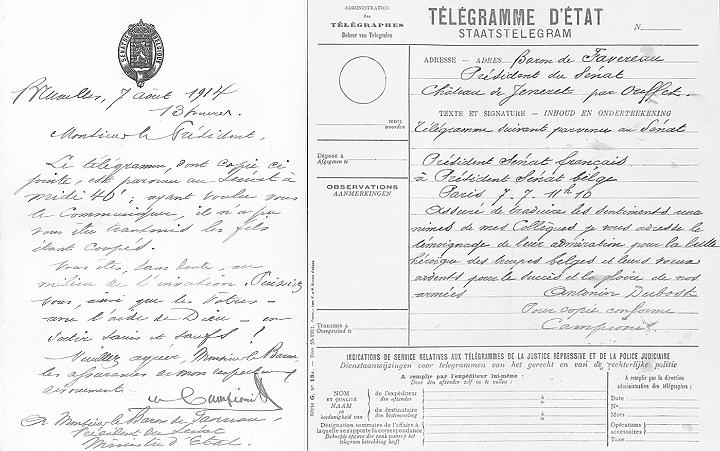 SÉNAT DE BELGIQUE
Bruxelles, 7 août 1914
13 heures.
Monsieur le Président,
Le télégramme, dont copie ci
jointe, est parvenu au Sénat à
midi 40'; ayant voulu vous
le communiquer, il n'a pu
vous être transmis les fils
étant coupés.
Vous êtes, sans doute, au
milieu de l'invasion. Puissiez
vous, ainsi que les vôtres –
avec l'aide de Dieu – en
sortir sains et saufs !
Veuillez agréer, Monsieur le Baron,
les assurances de mon respectueux
Campioni
A Monsieur le Baron de Favereau
Président du Sénat
Ministre d'Etat.
ADMINISTRATION
des
TÉLÉGRAPHES
Beheer van Telegrafen
TÉLÉGRAMME D'ÉTAT
STAATSTELEGRAM
N
ADRESSE — ADRES Baron de Favereau
Président du Sénat
Château de Jenneret par Ouffet.
TEXTE ET SIGNATURE — INHOUD EN ONDERTEEKENING
Télégramme suivant parvenu au Sénat
mots
woorden
Déposé à
Afgegeven te
OBSERVATIONS
AANMERKINGEN
Président Sénat français
à Président Sénat belge
Paris 7. 7. 11h 10
Assuré de traduire les sentiments una
nimes de mes Collègues je vous adresse le
témoignage de leur admiration pour la lutte
héroïque des troupes belges et leurs vœux
ardents pour le succès et la gloire de nos
armées Antonin Dubost
Pour copie conforme
Campioni.
Transmis à
Overgeseind te
INDICATIONS DE SERVICE RELATIVES AUX TÉLÉGRAMMES DE LA JUSTICE RÉPRESSIVE ET DE LA POLICE JUDICIAIRE
Dienstaanwijzingen voor telegrammen van het gerecht en van de rechterlijke politie
A remplir par l'expéditeur lui-même :
Door den afzender zelf in te vullen :
NOM
ET QUALITÉ
NAAM
en
hoedanigheid van
de l'expéditeur
den afzender
du destinataire
den bestemmeling
à
te
à
te
Désignation sommaire de l'affaire à
laquelle se rapporte la correspondance
Beknopte opgave der zaak waarop het
telegram betrekking heeft
A remplir par la direction
administrative des télégraphes :
Date
N°
Mots
Opérations
accessoires
Taxe